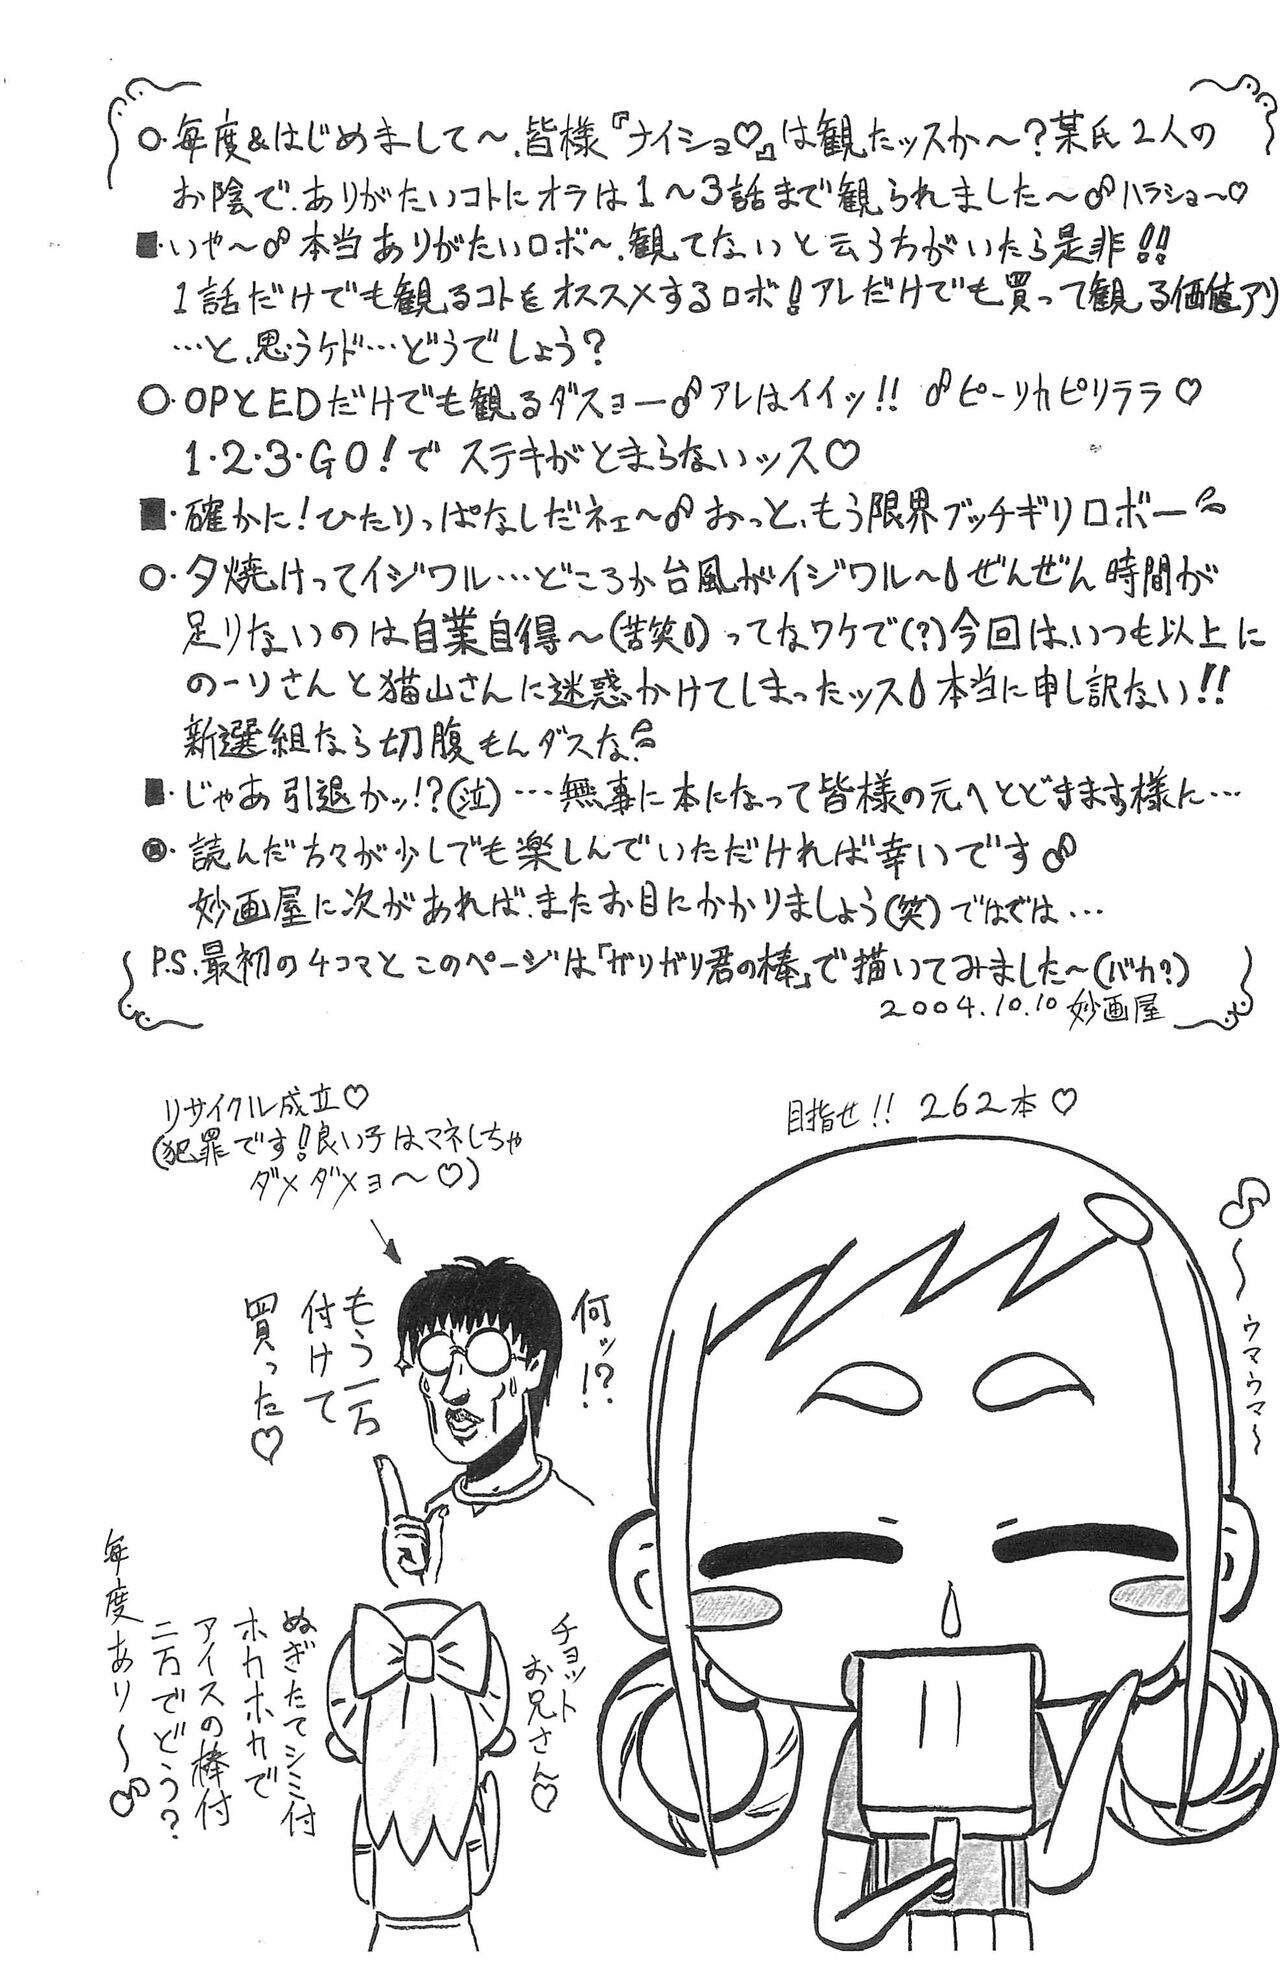 ○・毎度&はじめまして〜、皆様『ナイショ♡』は観たッスか〜?某氏2人の
お陰で、ありがたいコトにオラは1〜3話まで観られました〜♂ハラショ〜♡
■・いや〜♂本当ありがたいロボ〜、観てないと云う方がいたら是非!!
1話だけでも観るコトをオススメするロボ!アレだけでも買って観る価値アリ
…と、思うケド…どうでしょう?
○・OPとEDだけでも観るダスョー♂アレはイイッ!!♂ピーリカピリララ♡
1・2・3・GO!でステキがとまらないッス♡
■・確かに!ひたりっぱなしだネェ〜♂おっと、もう限界ブッチギリロボー
○・夕焼けってイジワル…どころか台風がイジワル〜ぜんぜん時間が
足りないのは自業自得〜(苦笑)ってなワケで(?)今回は、いつも以上に
のーりさんと猫山さんに迷惑かけてしまったッス本当に申し訳ない!!
新選組なら切腹もんダスな
■・じゃあ引退かッ!?(泣)…無事に本になって皆様の元へとどきます様に…
・読んだ方々が少しでも楽しんでいただければ幸いです♂
妙画屋に次があれば、またお目にかかりましょう(笑)ではでは…
P.S.最初の4コマとこのページは「ガリガリ君の棒」で描いてみました〜(バカ?)
2004.10.10 妙画屋